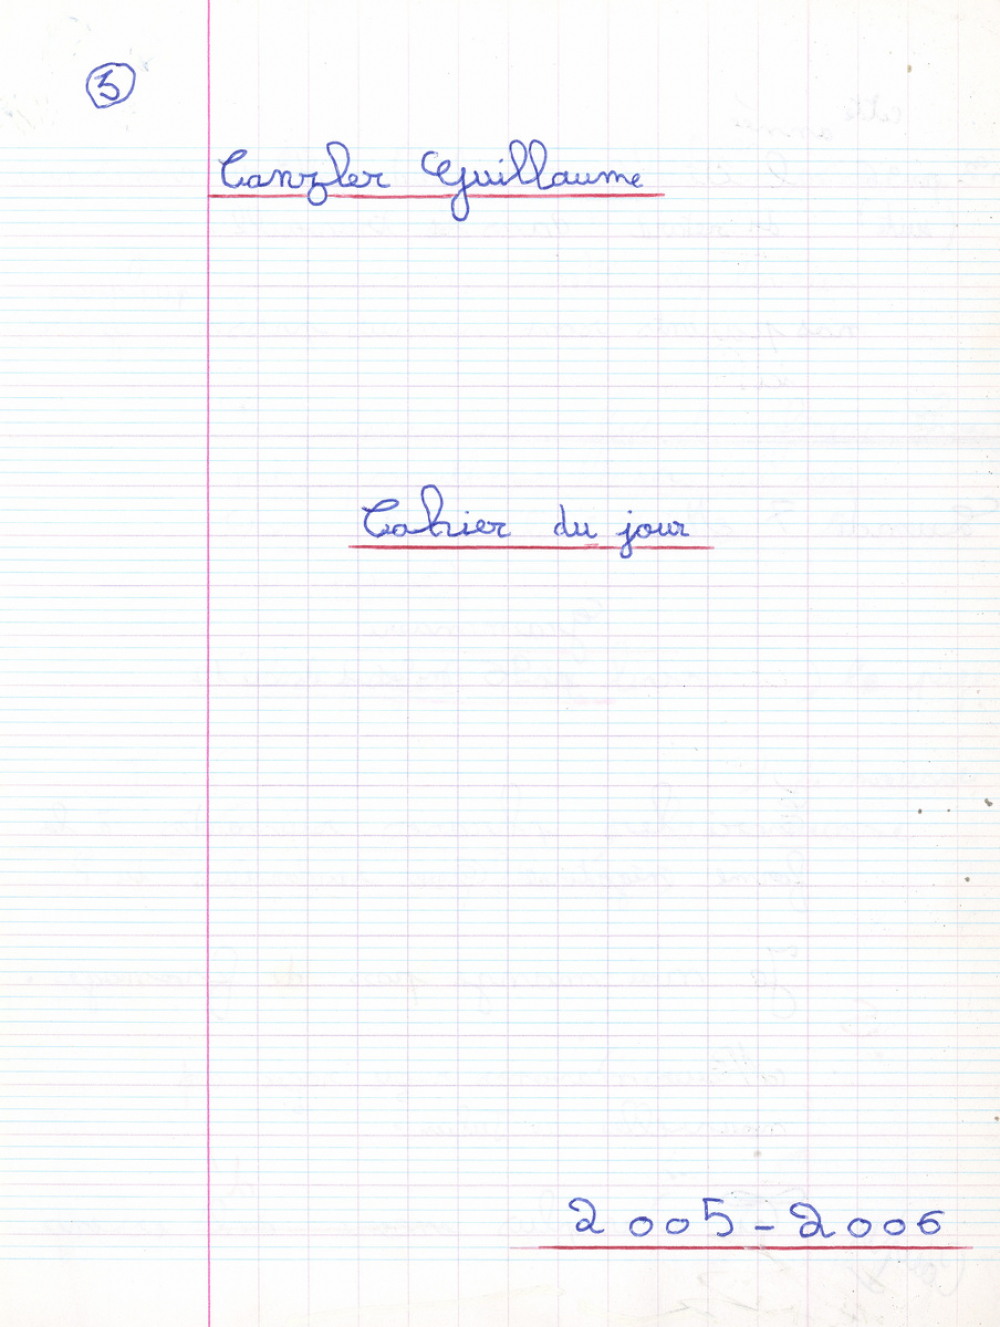 5
Canzler Guillaume
Cahier du jour
2005-2006